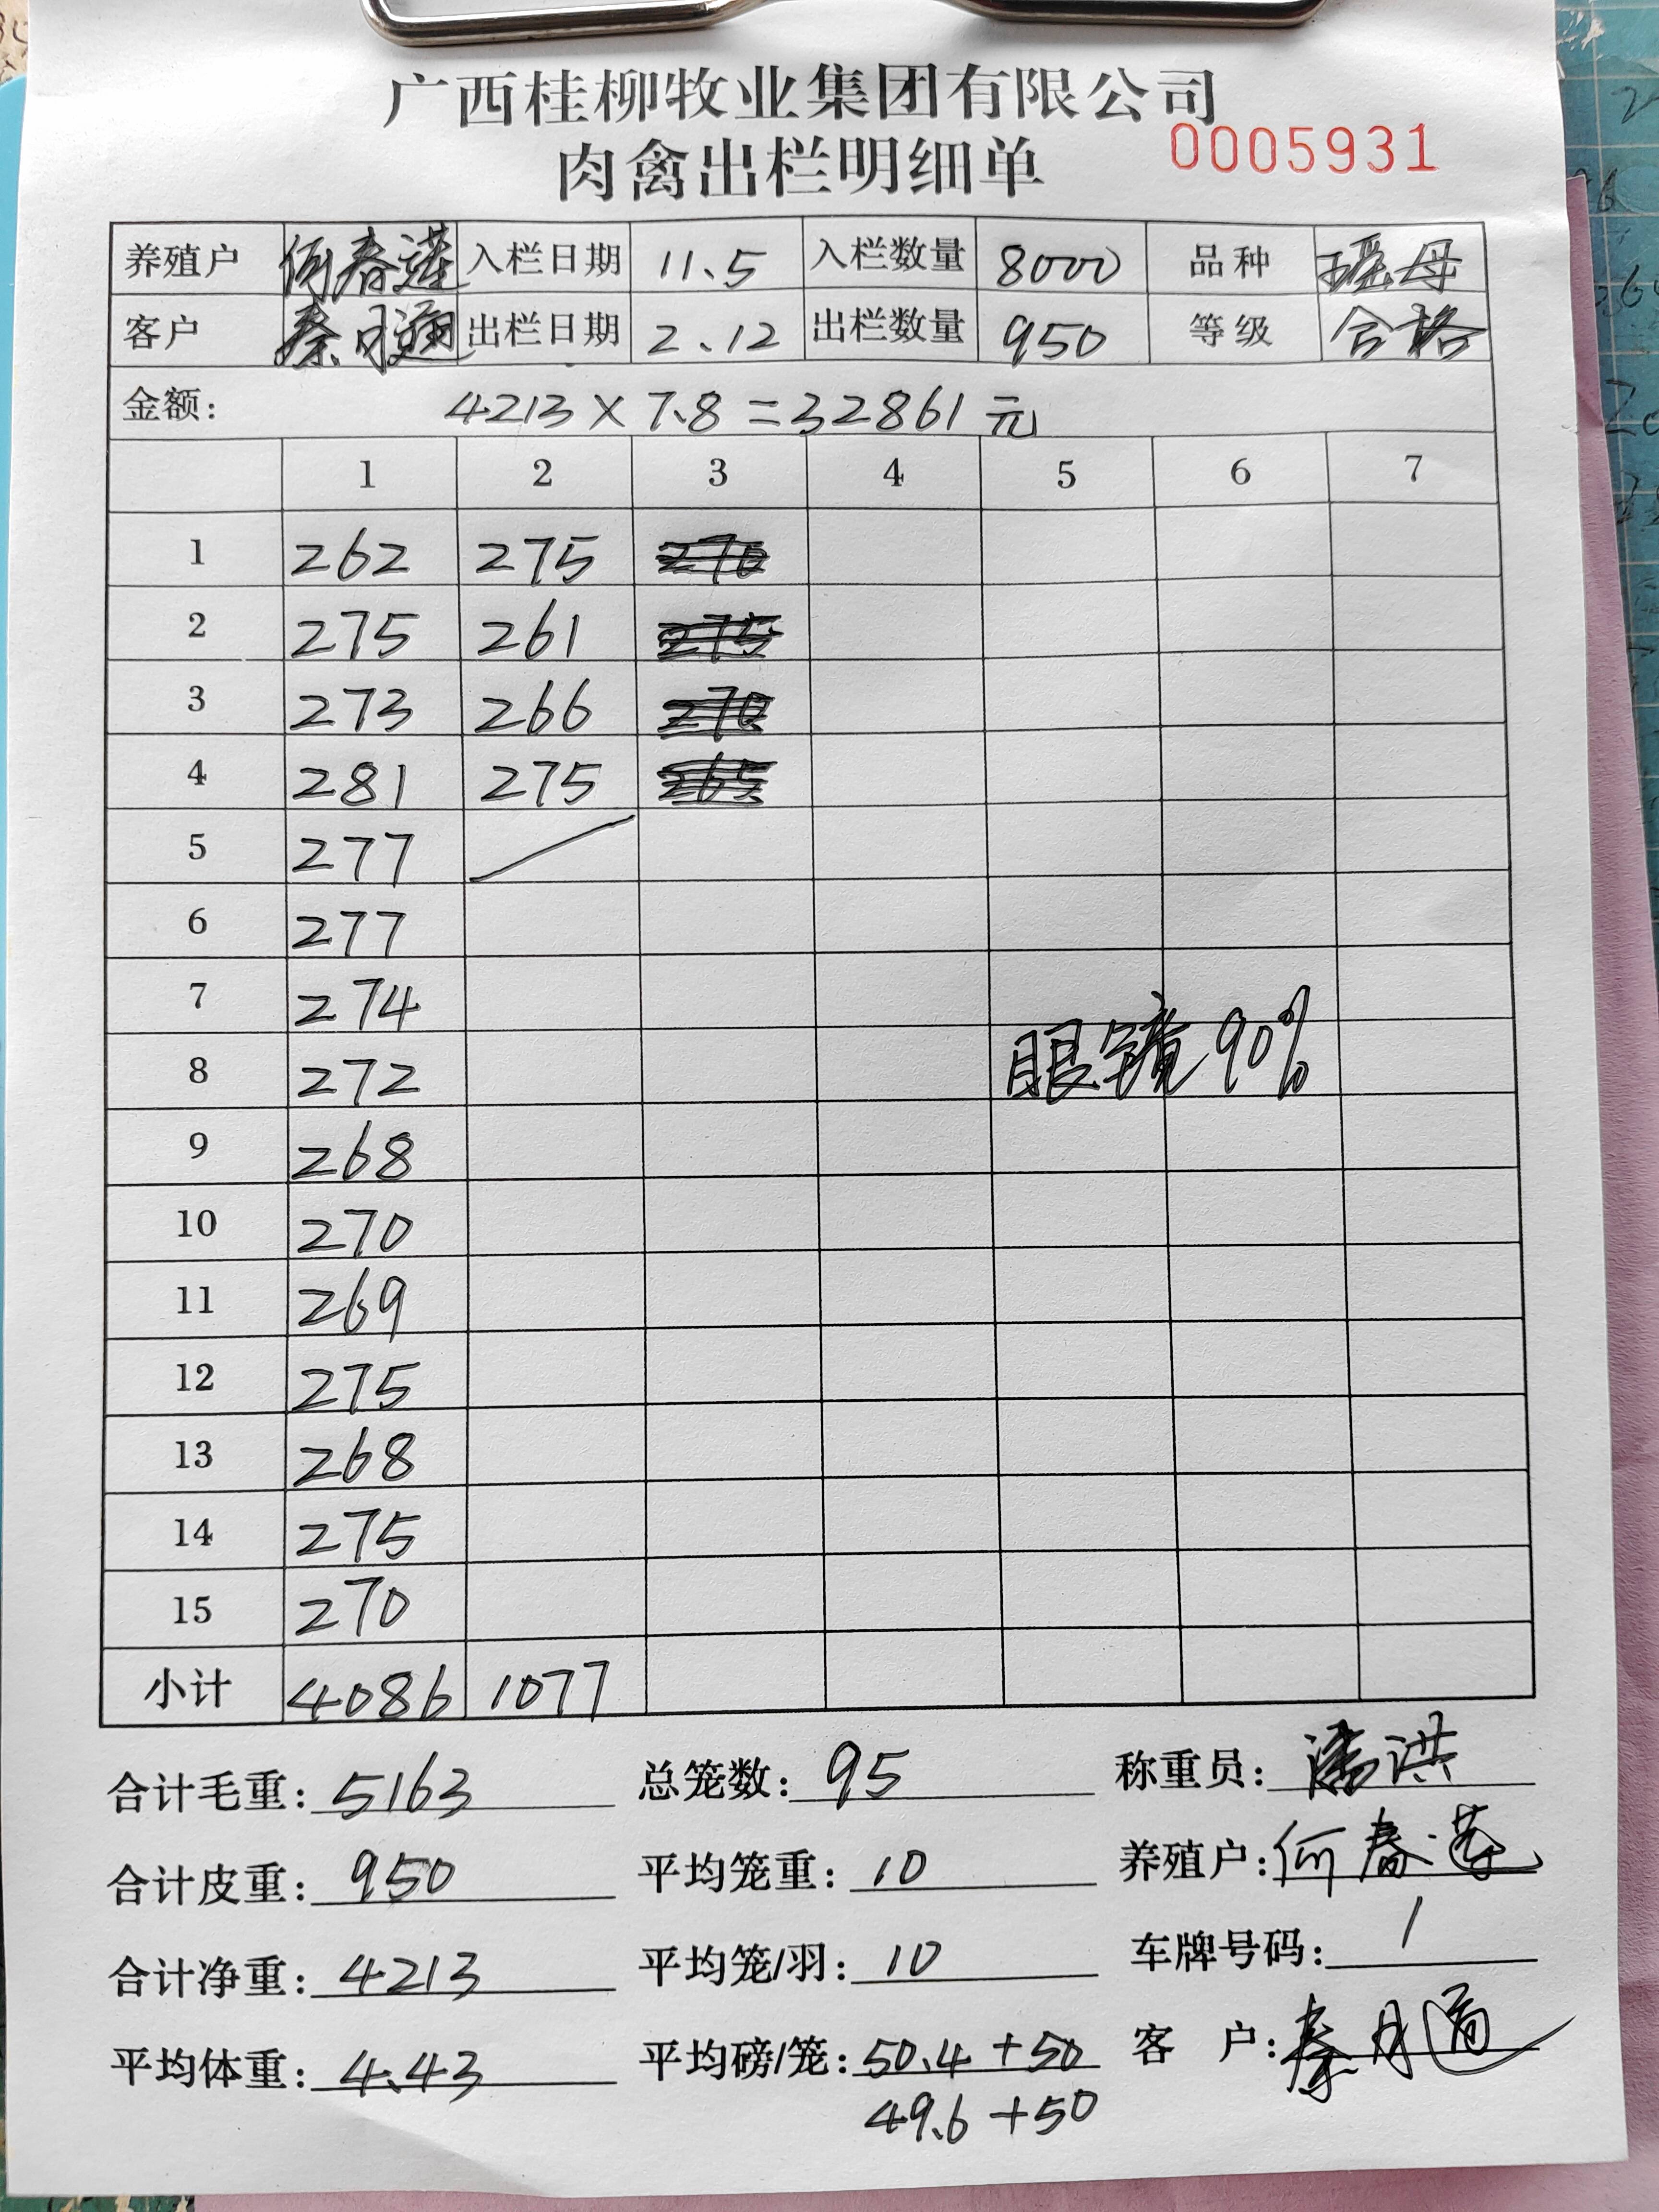 广西桂柳牧业集团有限公司
肉禽出栏明细单 0005931
养殖户 何春莲 入栏日期 11.5 入栏数量 8000 品种 瑶母
客户 秦月 出栏日期 2.12 出栏数量 950 等级 合格
金额: 4213×7.8=32861元
1 2 3 4 5 6 7
1 262 275
2 275 261
3 273 266
4 281 275
5 277
6 277
7 274
8 272 眼镜90%
9 268
10 270
11 269
12 275
13 268
14 275
15 270
小计 4086 1077
合计毛重: 5163 总笼数: 95 称重员: 潘洪
合计皮重: 950 平均笼重: 10 养殖户: 何春莲
合计净重: 4213 平均笼/羽: 10 车牌号码: /
平均体重: 4.43 平均磅/笼: 50.4+50 客 户: 秦月
49.6+50